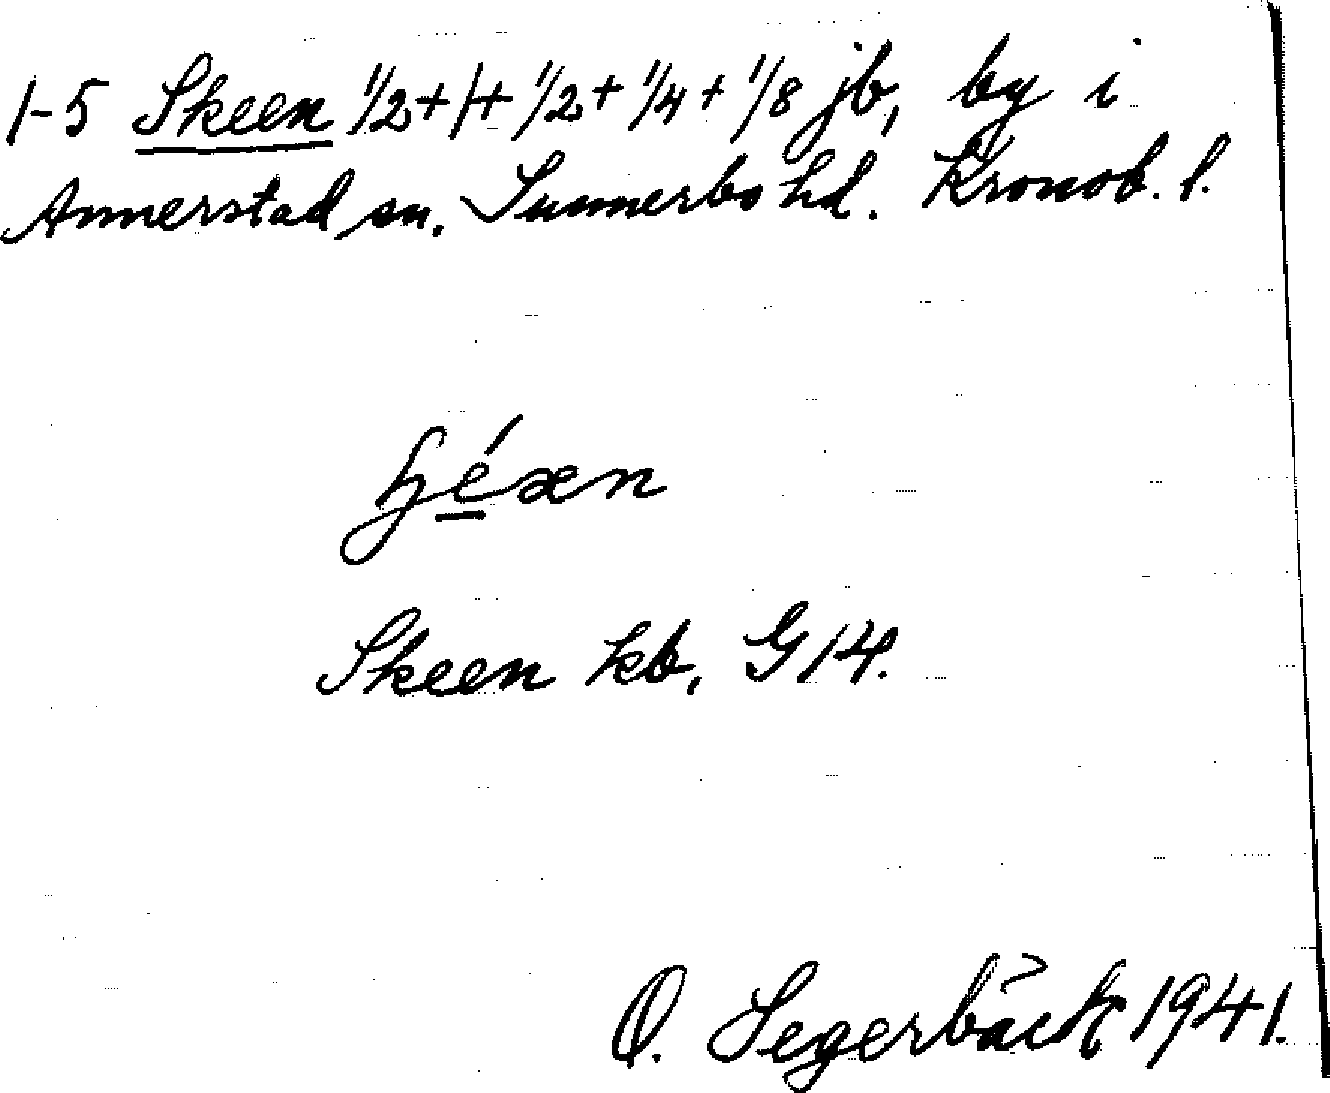 1-5 Skeen 1/2+1+1/2+1/4+1/8 jb, by i
Annerstad sn. Sunnerbo hd. Kronob. l.
ɧéæn
Skeen kb, G14.
O. Segerbäck 1941.